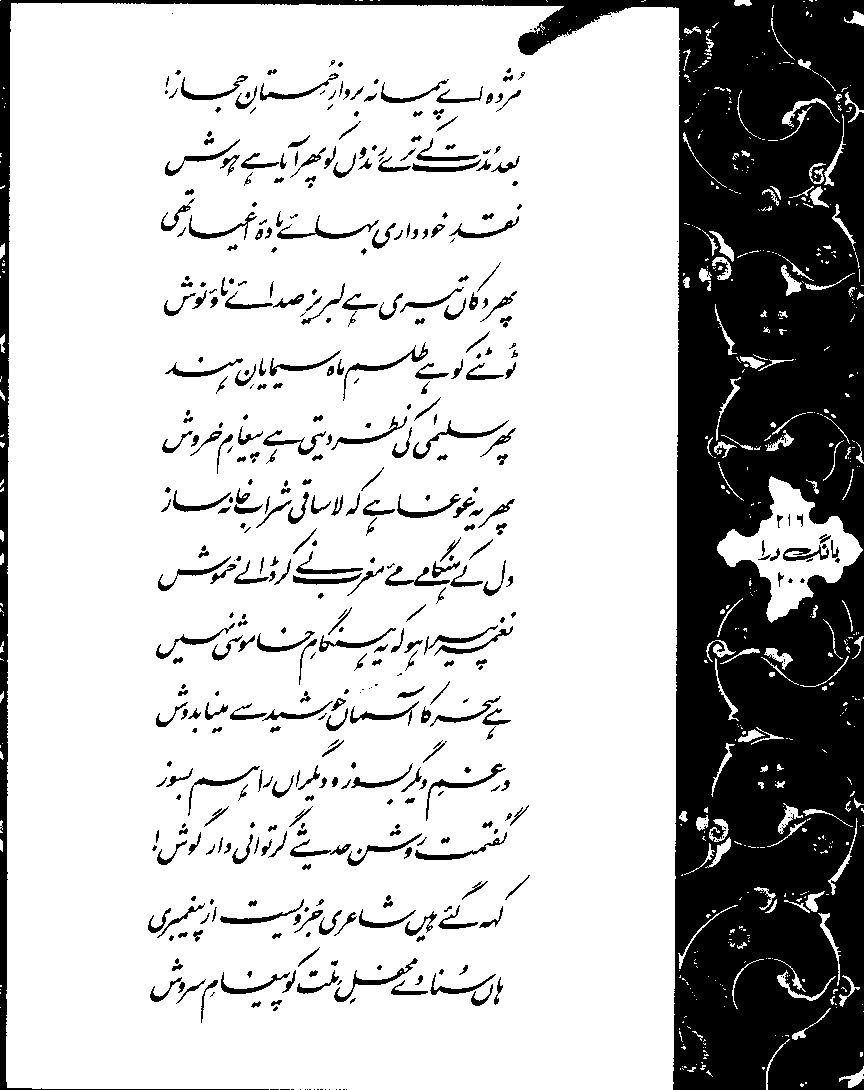 مُژدہ اے پیمانہ بردارِ خُمِستانِ حجاز!
بعد مُدّت کے ترے رِندوں کو پھر آیا ہے ہوش
نقدِ خودداری بہائے بادۂ اغیار تھی
پھر دکاں تیری ہے لبریزِ صدائے ناؤ نوش
ٹُوٹنے کو ہے طلسمِ ماہ سیمایانِ ہند
پھر سلیمیٰ کی نظر دیتی ہے پیغامِ خروش
پھر یہ غوغا ہے کہ لاساقی شرابِ خانہ ساز
دل کے ہنگامے مۓ مغرب نے کر ڈالے خموش
نغمہ پیرا ہو کہ یہ ہنگامِ خاموشی نہیں
ہے سحر کا آسماں خورشید سے مینا بدوش
در غمِ دیگر بسوز و دیگراں را ہم بسوز
گُفتمت روشن حدیثے گر توانی دار گوش!
کہہ گئے ہیں شاعری جُزویست از پیغمبری
ہاں سُنا دے محفلِ ملّت کو پیغامِ سروش
۲۱۶
بانگِ درا
۲۰۰